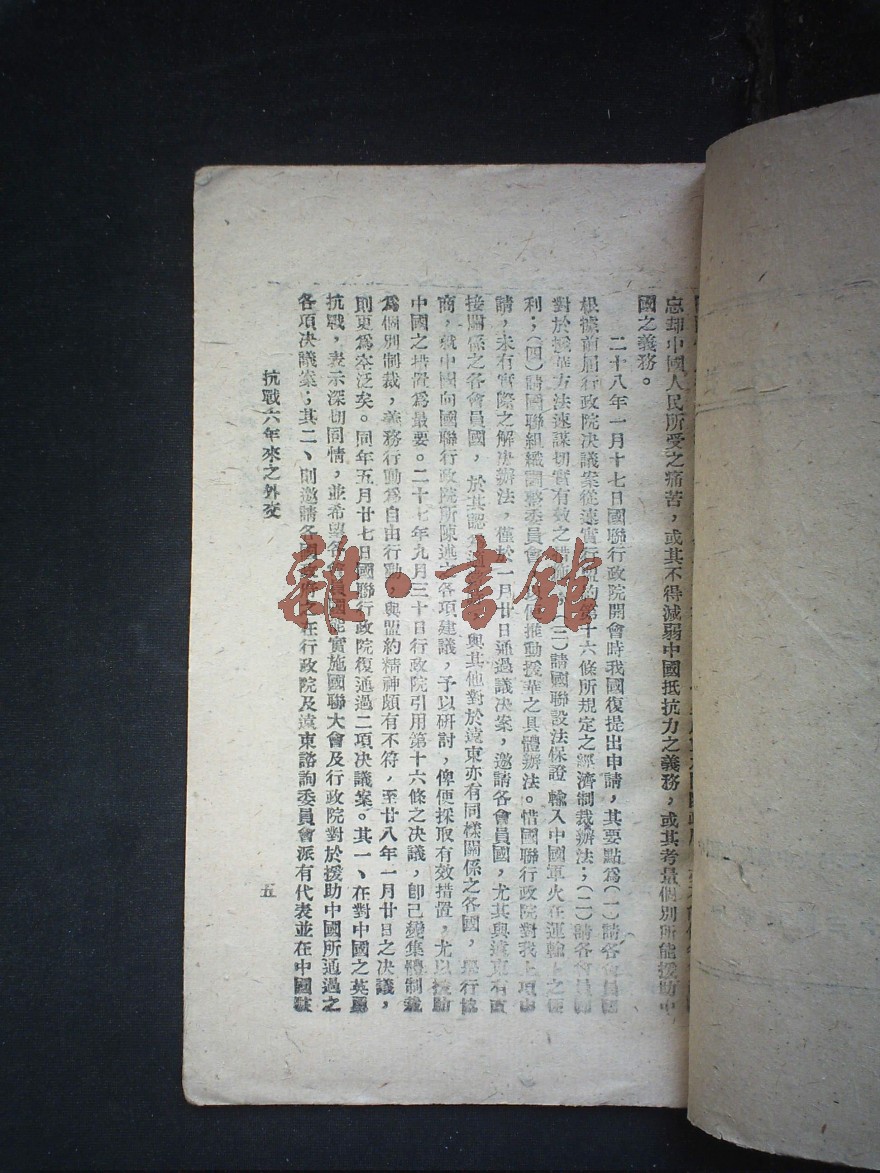 忘却中國人民所受之痛苦，或其不得減弱中國抵抗力之義務，或其考量個別所能援助中
國之義務。
二十八年一月十七日國聯行政院開會時我國復提出申請，其要點爲（一）請各會員國
根據前屆行政院決議案從速實行盟約第十六條所規定之經濟制裁辦法；（二）請各會員國
對於援華方法速謀切實有效之措施（三）請國聯設法保證 輸入中國軍火在運輸上之便
利；（四）請國聯組織調整委員會 推動援華之具體辦法。惜國聯行政院對我上項申
請，未有實際之解決辦法，僅於一月廿日通過議決案，邀請各會員國，尤其與遠東有直
接關係之各會員國，於其認爲 與其他對於遠東亦有同樣關係之各國，舉行協
商，就中國向國聯行政院所陳述之各項建議，予以研討，俾便採取有效措置，尤以援助
中國之措置爲最要。二十七年九月三十日行政院引用第十六條之決議，卽已變集體制裁
爲個別制裁，義務行動爲自由行動，與盟約精神頗有不符，至廿八年一月廿日之決議，
則更爲空泛矣。同年五月廿七日國聯行政院復通過二項決議案。其一、在對中國之英勇
抗戰，表示深切同情，並希望各 國能實施國聯大會及行政院對於援助中國所通過之
各項決議案；其二、則邀請各國 在行政院及遠東諮詢委員會派有代表並在中國駐
抗戰六年來之外交
五
雜·書館